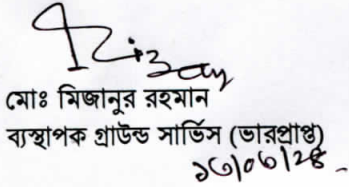 মোঃ মিজানুর রহমান
ব্যস্থাপক গ্রাউন্ড সার্ভিস (ভারপ্রাপ্ত)